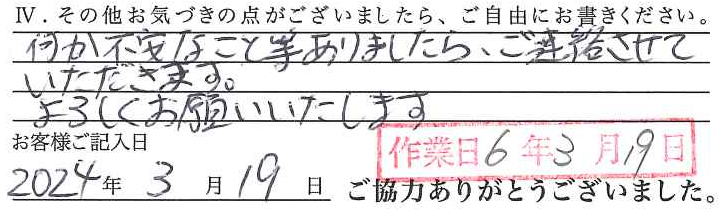 Ⅳ．その他お気づきの点がございましたら、ご自由にお書きください。
何か不安なこと等ありましたら、ご連絡させて
いただきます。
よろしくお願いいたします
お客様ご記入日
作業日6年3月19日
2024年3月19日
ご協力ありがとうございました。